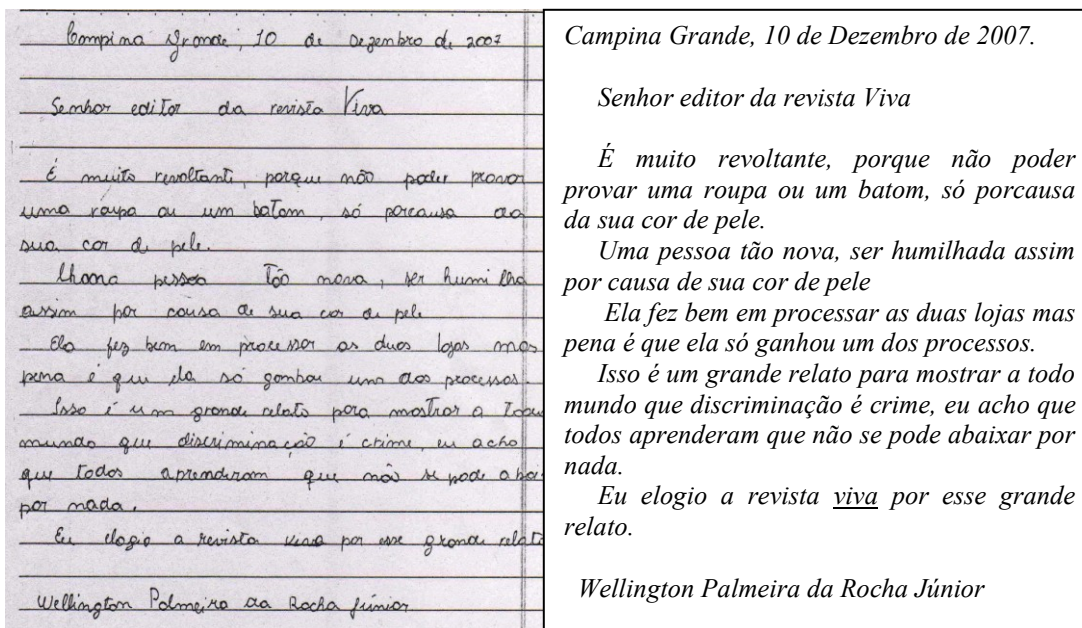 Campina Grande, 10 de Dezembro de 2007
Senhor editor da revista Viva
É muito revoltante, porque não poder provar
uma roupa ou um batom, só porcausa da
sua cor de pele.
Uma pessoa tão nova, ser humilha
assim por causa de sua cor de pele
Ela fez bem em processar as duas lojas mas
pena é que ela só ganhou um dos processos.
Isso é um grande relato para mostrar a todo
mundo que discriminação é crime, eu acho
que todos aprenderam que não se pode aba
por nada.
Eu elogio a revista viva por esse grande relato
Wellington Palmeira da Rocha júnior
Campina Grande, 10 de Dezembro de 2007.
Senhor editor da revista Viva
É muito revoltante, porque não poder
provar uma roupa ou um batom, só porcausa
da sua cor de pele.
Uma pessoa tão nova, ser humilhada assim
por causa de sua cor de pele
Ela fez bem em processar as duas lojas mas
pena é que ela só ganhou um dos processos.
Isso é um grande relato para mostrar a todo
mundo que discriminação é crime, eu acho que
todos aprenderam que não se pode abaixar por
nada.
Eu elogio a revista viva por esse grande
relato.
Wellington Palmeira da Rocha Júnior